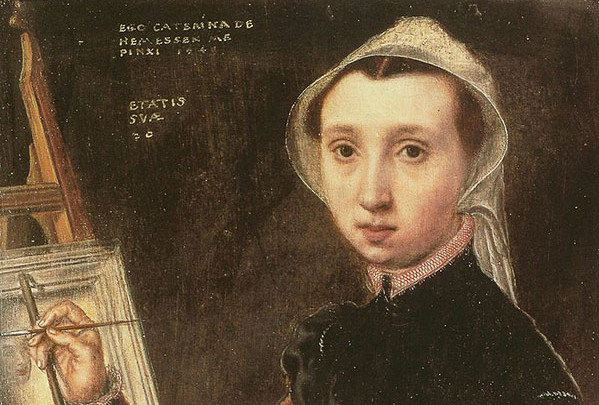 EGO CATERINA DE
HEMESSEN ME
PINXI
ETATIS
SVÆ
20